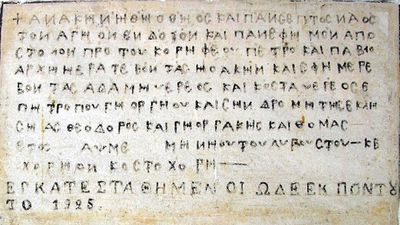 + ΑΝΑΚΗΝΗΘΗ Ο ΘΗΟC ΚΑΙ ΠΑΝCΕΠΤΟC ΝΑΟC
ΤΟΝ ΑΓΗΟΝ ΕΝΔΟΞΟΝ ΚΑΙ ΠΑΝΕΦΗΜΟΝ ΑΠΟC
ΤΟΛΟΝ ΠΡΟΤΟΚΟΡΗΦΕΟΝ ΠΕΤΡΟ ΚΑΙ ΠΑΒΛΟ
ΑΡΧΗΗΕΡΑΤΕΒΟΝΤΑC ΗΟΑΚΗΜ ΚΑΙ ΕΦΗΜΕΡΕ
ΒΟΝΤΑC ΑΔΑΜ ΗΕΡΕΟC ΚΑΙ ΚΟCΤΑ ΗΕΡΕΟC Ε
ΠΗΤΡΟΠΟΥ ΓΗΟΡΓΗΟΥ ΚΑΙ CΗΝΔΡΟΜΗ ΤΗC ΕΚΛΗ
CΗΑC ΘΕΟΔΟΡΟC ΚΑΙ ΓΗΟΡΓΑΚΗC ΚΑΙ ΘΟΜΑC
ΕΤΟC ΑΥΜΕ ΜΗΝΗ ΚΕ
ΧΟΡΗΟΝ ΚΟCΤΟΧΟΡΗ
ΕΓΚΑΤΕΣΤΑΘΗΜΕΝ ΟΙ ΩΔΕ ΕΚ ΠΟΝΤΟΥ
ΤΟ 1925.